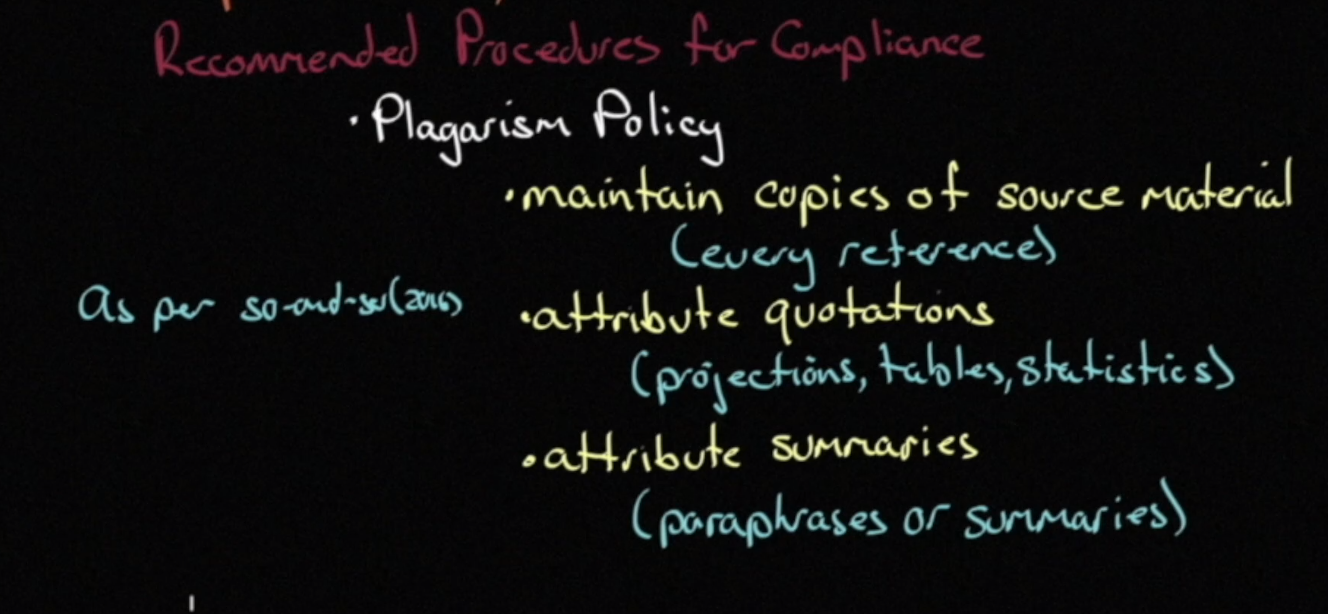 Recommended Procedures for Compliance
• Plagarism Policy
• maintain copies of source material
(every reference)
As per so-and-so (2016)
• attribute quotations
(projections, tables, statistics)
• attribute summaries
(paraphrases or summaries)